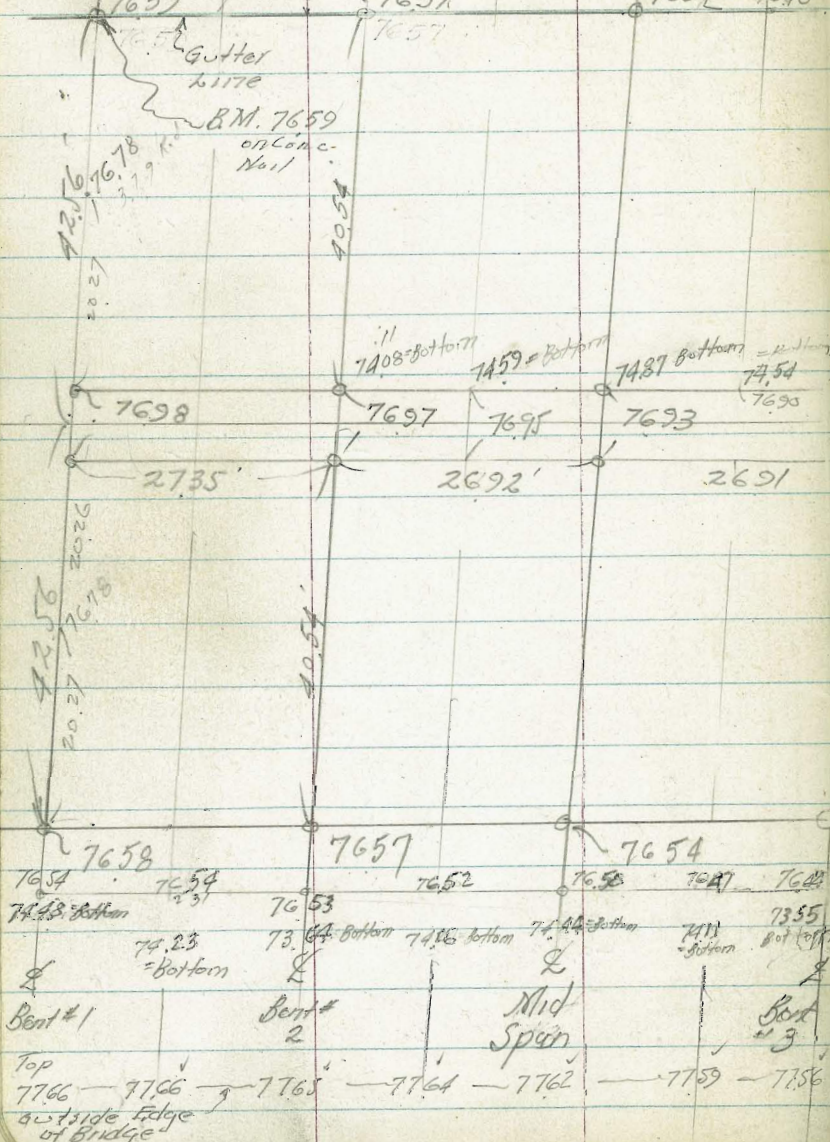 7657
Gutter
Line
B.M. 7659
on Conc-
Nail
42.56
76.78
20.27
40.54
.11
7408=Bottom
7459=Bottom
7487 Bottom
74.54
7690
7698
7697
7695
7693
2735'
2692'
2691
20.26
42.56
7678
20.27
40.54'
7658
7657
7654
7654
7654
7653
7652
7650
7647
7644
7448=Bottom
74.23
=Bottom
73.64=Bottom
7416 Bottom
7444=Bottom
7411
=Bottom
7355
℄
℄
℄
℄
Bent #1
Bent #
2
Mid
Span
Bent
#3
Top
7766 — 7766 — 7765 — 7764 — 7762 — 7759 — 7756
outside Edge
of Bridge